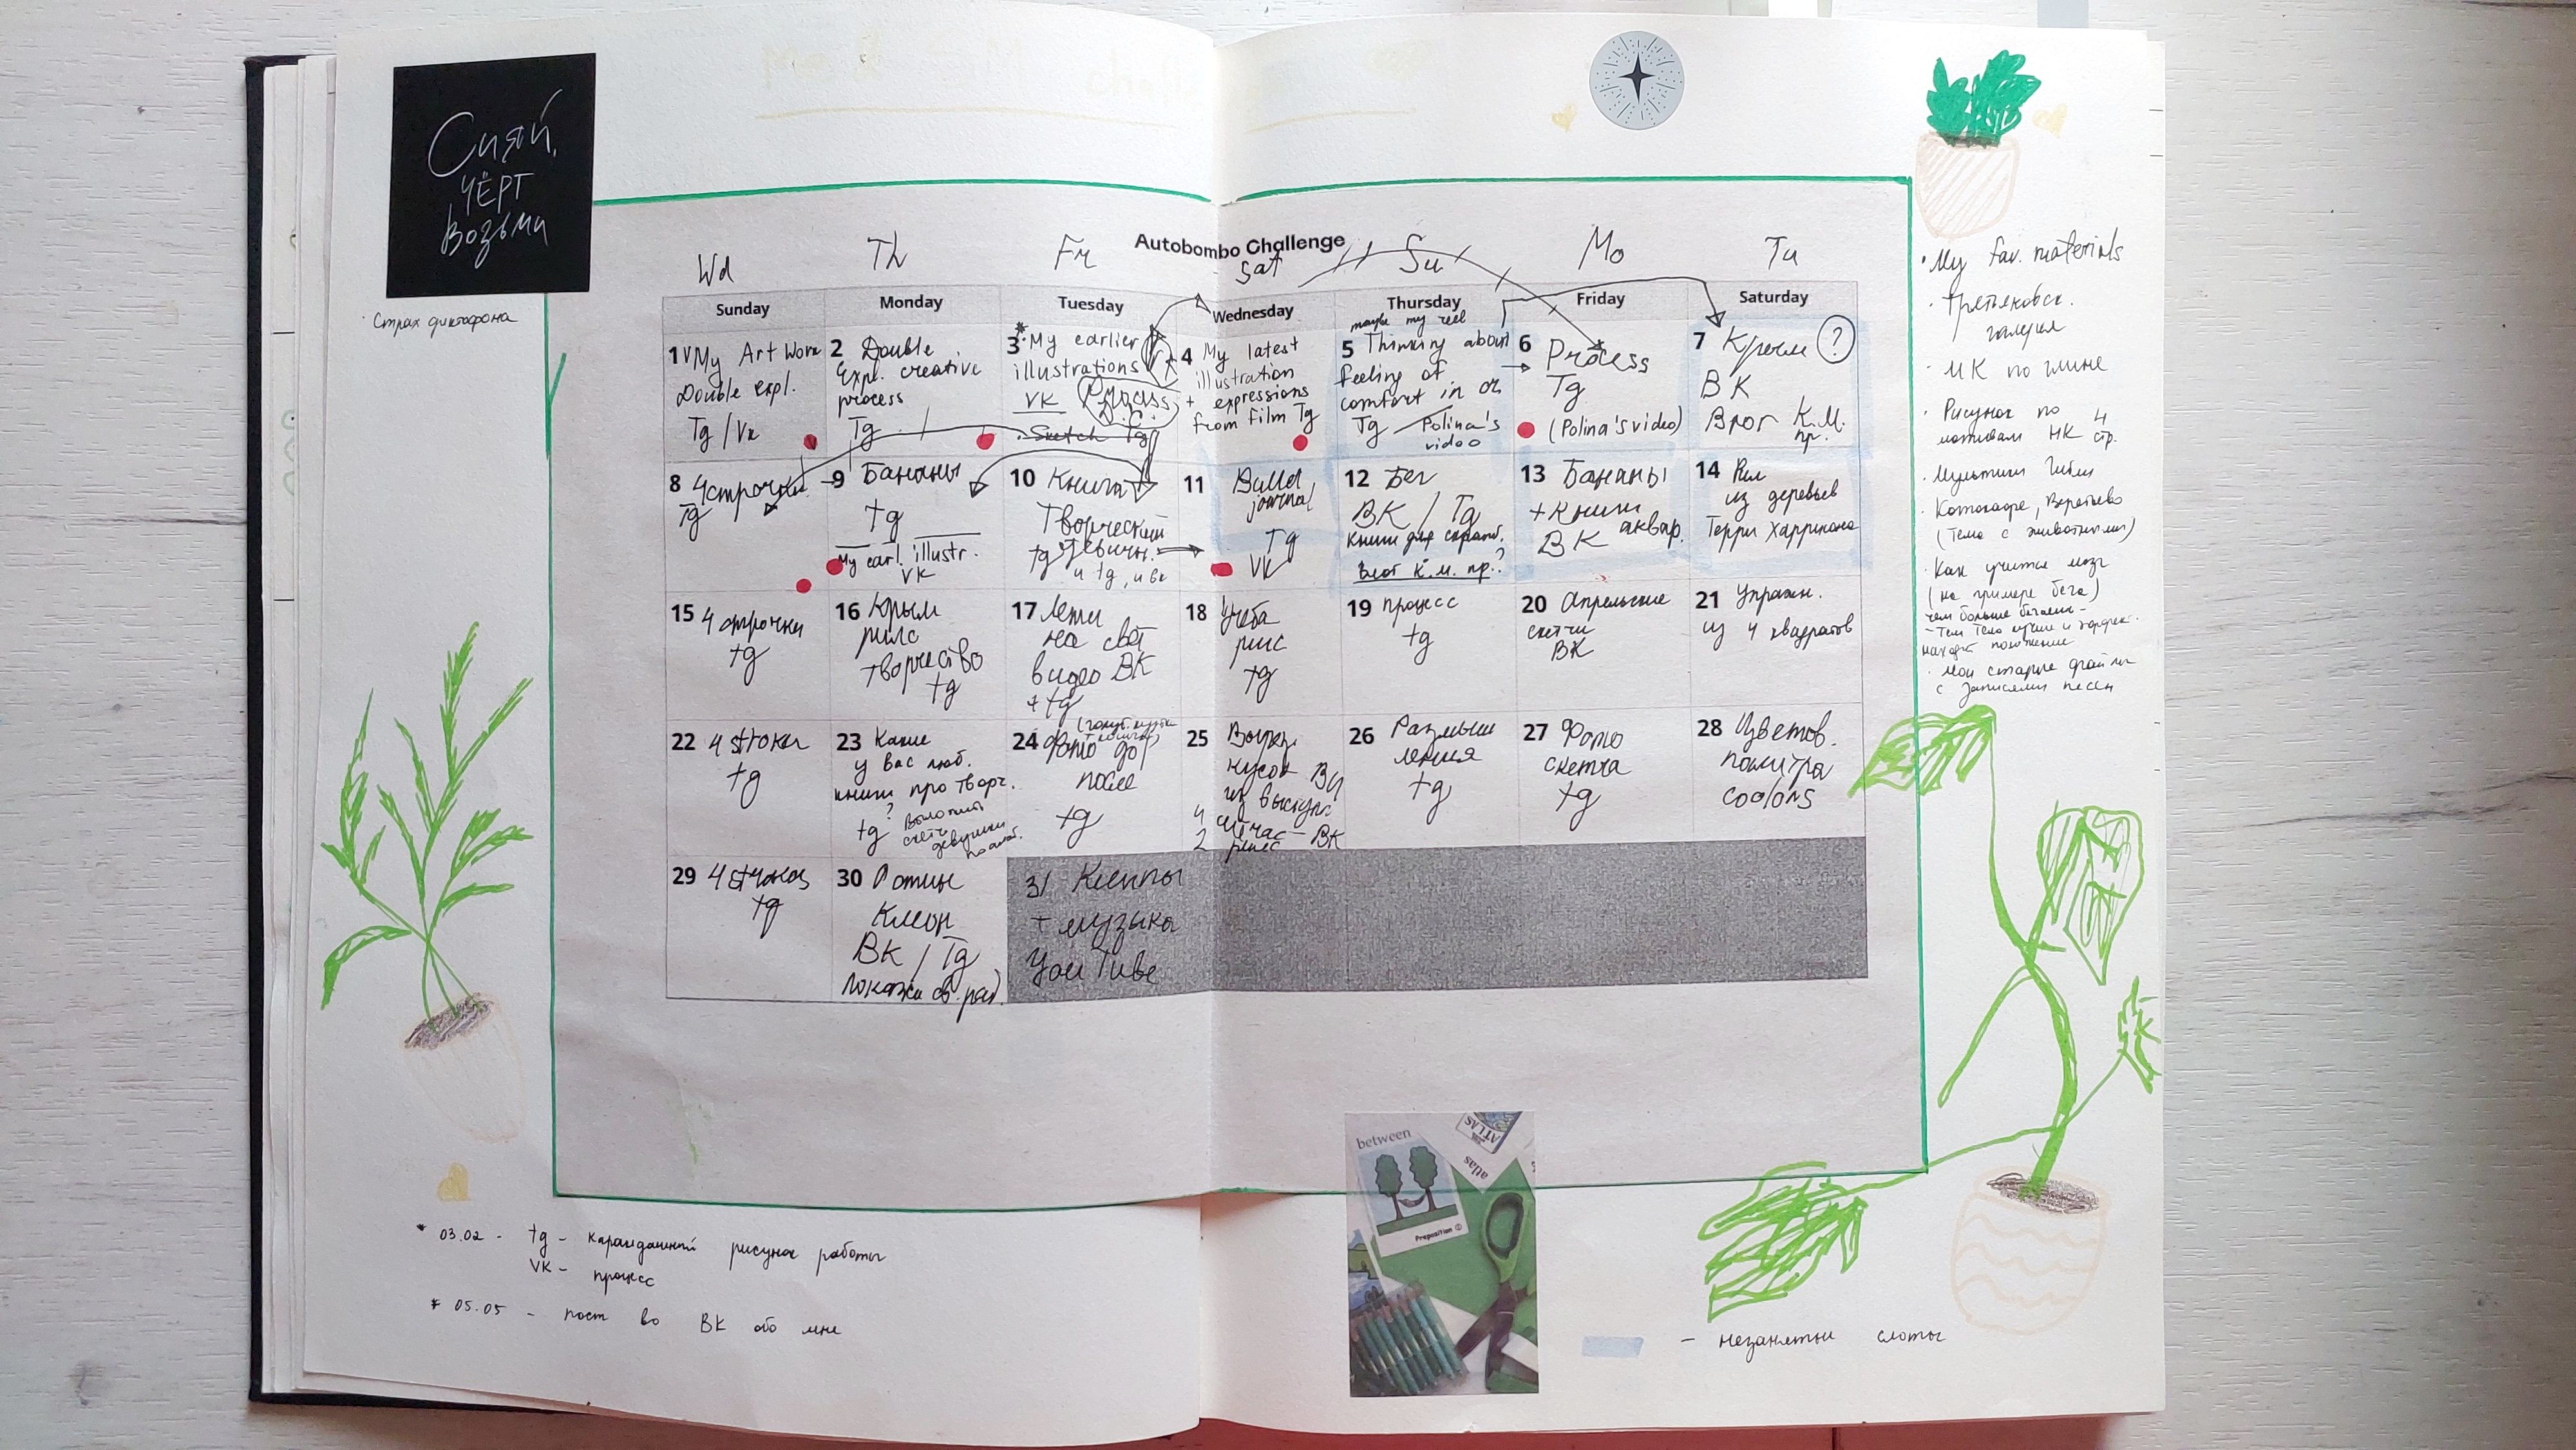 Сияй,
ЧЁРТ
Возьми
Страх диктофона
Autobombo Challenge
Wd Th Fr Sat Su Mo Tu
Sunday Monday Tuesday Wednesday Thursday Friday Saturday
1 V My Art Work
Double expl.
Tg / Vk
2 Double
Expl. creative
process
Tg
3 * My earlier
illustrations
VK Process
D.E.
Sketch Tg
4 My latest
illustration
+ expressions
from film Tg
maybe my reel
5 Thinking about
feeling of
comfort in or
Tg Polina's
video
6 Process
Tg
(Polina's video)
7 Крым ?
ВК
Влог К.М.
пр.
8 4 строчки
Tg
9 Бананы
tg
My earl. illustr.
VK
10 Книга
Творческий
tg
и tg, и вк
11 Bulld
journal
Tg
VK
12 Бег
ВК / Tg
Книги для
Влог К.М. пр.?
13 Бананы
+ Книги
аквар.
ВК
14 Рил
из деревьев
Терри Харрисона
15 4 строчки
tg
16 Крым
рилс
творчество
tg
17 Лети
на свет
видео ВК
+ tg
18 Учёба
рилс
tg
19 процесс
tg
20 Апрельские
скетчи
ВК
21 Упражн.
из 4 квадратов
22 4 strokes
tg
23 Какие
у вас люб.
книги про творч.
?
tg Выложить
скетч
девушки
24 Фото до/
после
tg
25
кусок
из выскул.
сейчас – ВК
рилс
26 Размыш
ления
tg
27 Фото
скетча
tg
28 Цветов.
палитра
coolors
29 4 strokes
tg
30 Остин
Клеон
ВК / Tg
Покажи св. раб.
31 Клипы
+ музыка
YouTube
• My fav. materials
• Третьяковск.
галерея
• МК по глине
• Рисунок по
мотивам МК 4
стр.
• Мультики Гибли
Котокафе,
(Тема с животными)
• Как учится мозг
(на примере бега)
чем больше бегаешь –
– тем тело лучше и
находит положение
• Мои старые файлы
с записями песен
between
ATLAS
atlas
Preposition
* 03.02 – tg – карандашный рисунок работы
VK – процесс
* 05.05 – пост во ВК обо мне
– незанятые слоты